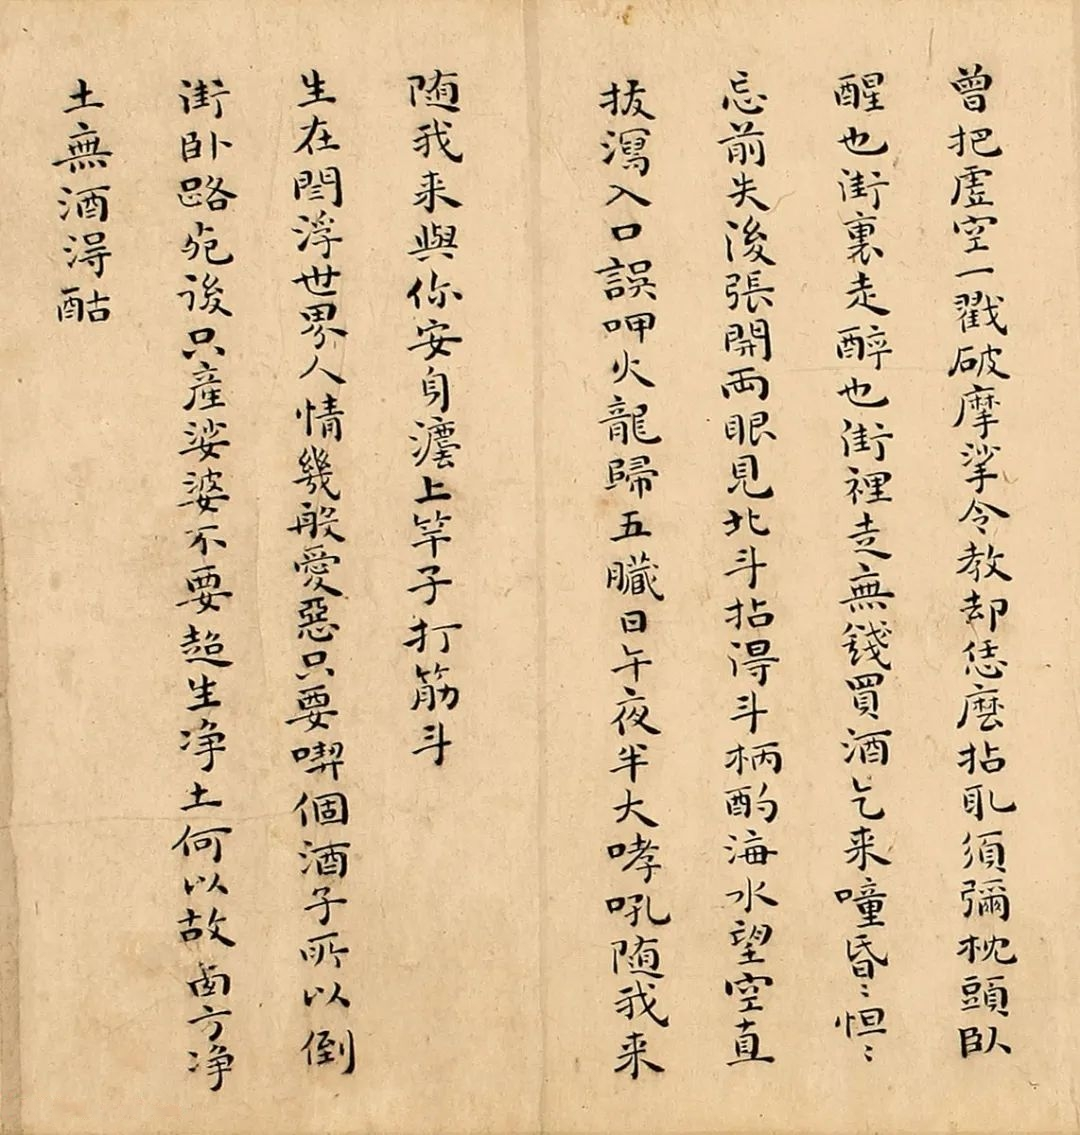 曾把虛空一戳破摩挲令教却恁麼拈取須彌枕頭臥
醒也街裏走醉也街裡走無錢買酒乞来噇昏〻怛〻
忘前失後張開兩眼見北斗拈得斗柄酌海水望空直
拔瀉入口誤呷火龍歸五臟日午夜半大哮吼随我来
随我来與你安身㵽上竿子打筋斗
生在閻浮世界人情幾般愛惡只要喫個酒子所以倒
街卧路死後只產娑婆不要超生净土何以故西方净
土無酒得酤